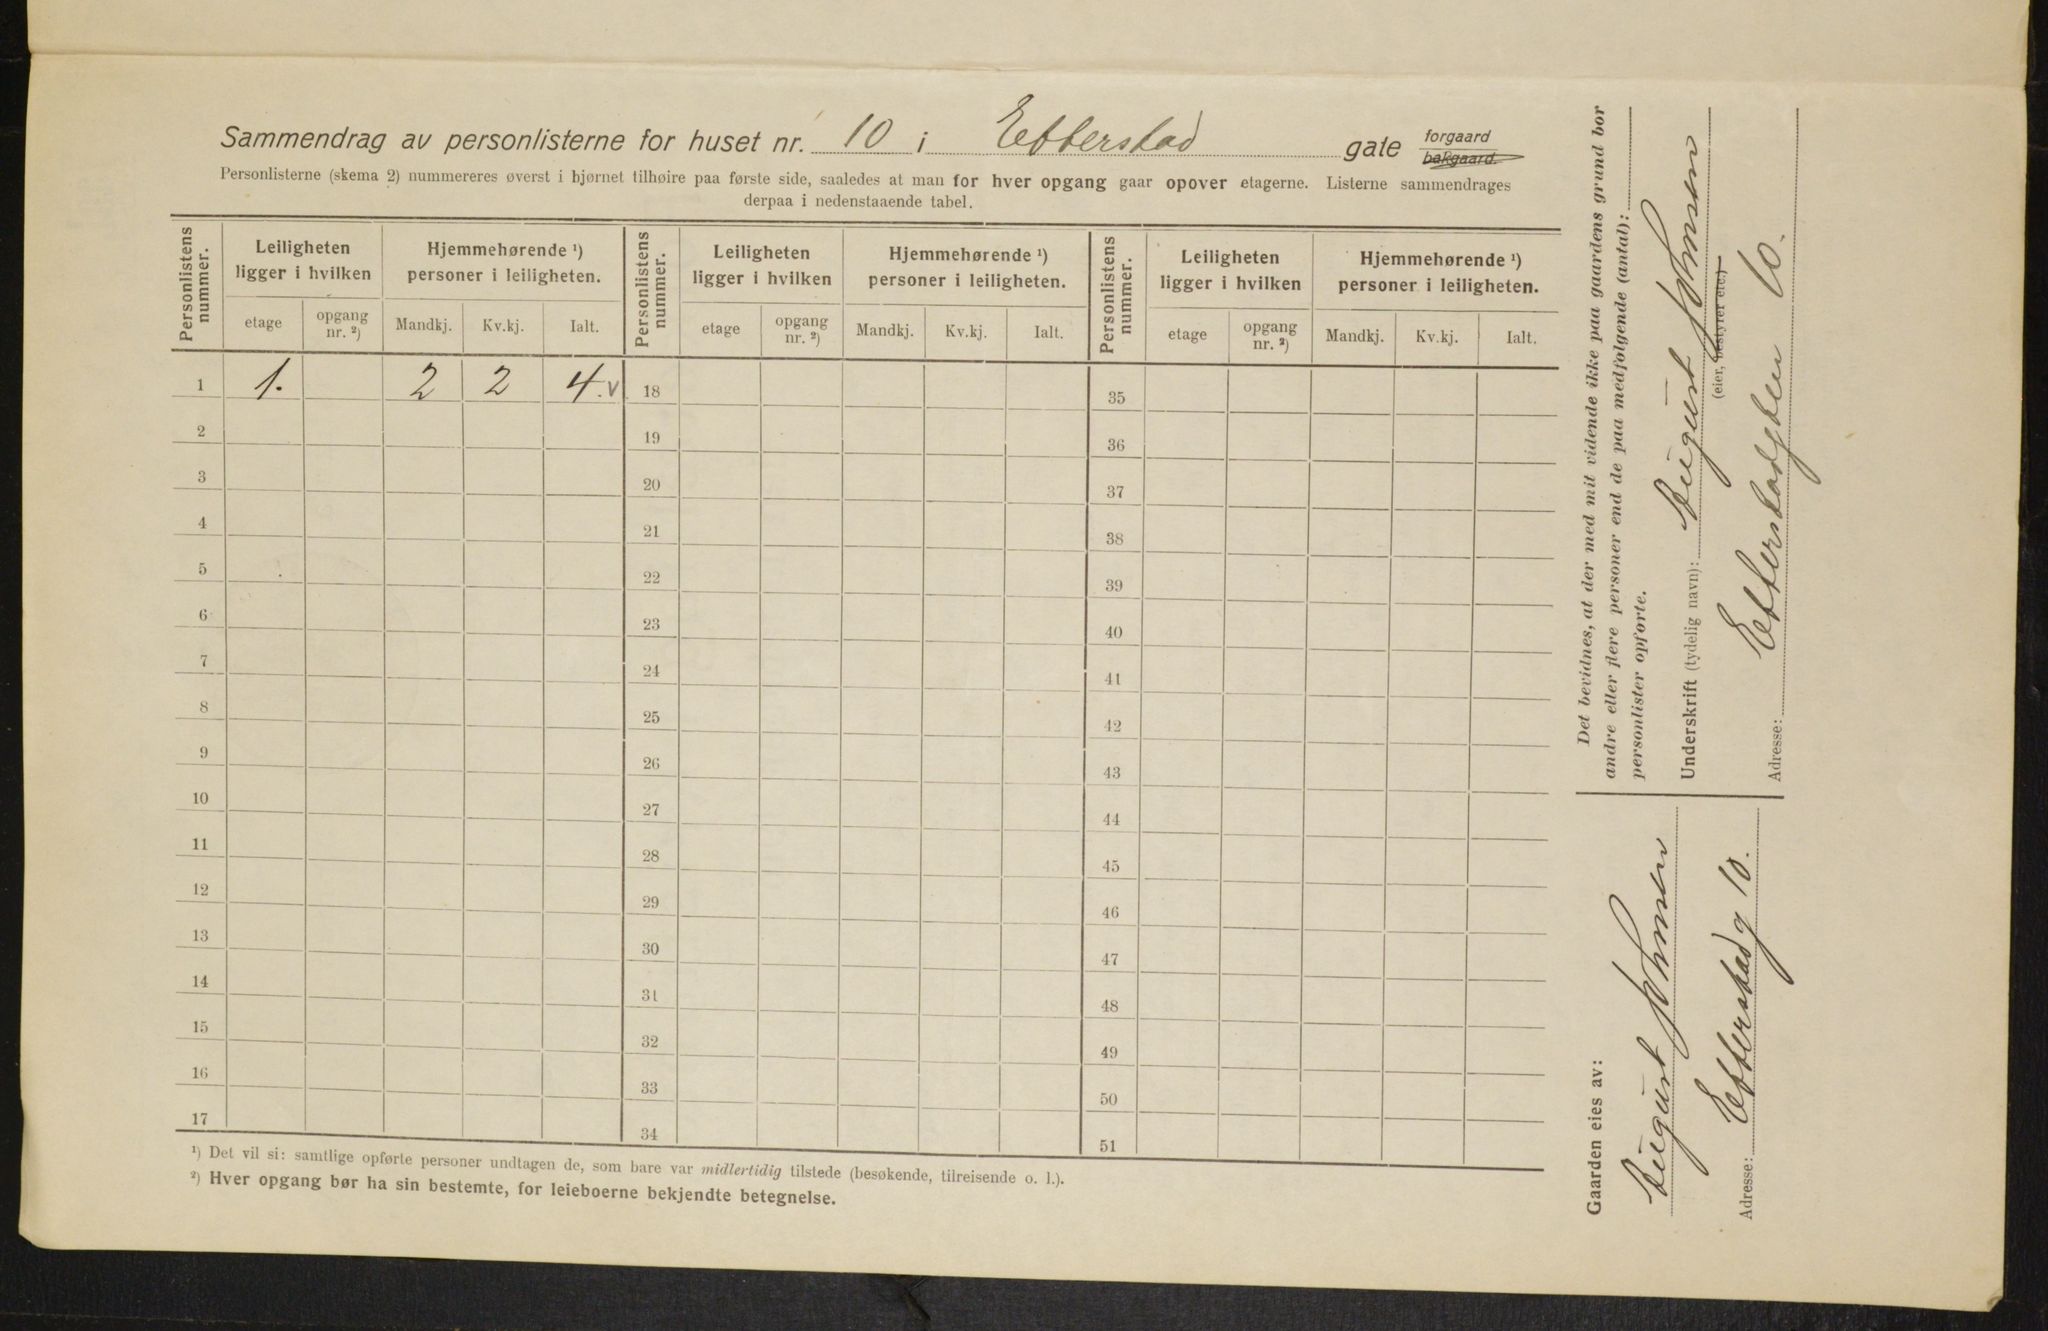 Sammendrag av personlisterne for huset nr. 10 i Etterstad gate forgaard bakgaard.
Personlisterne (skema 2) nummereres øverst i hjørnet tilhøire paa første side, saaledes at man for hver opgang gaar opover etagerne. Listerne sammendrages
derpaa i nedenstaaende tabel.
Personlistens nummer. Leiligheten ligger i hvilken Hjemmehørende ¹) personer i leiligheten. Personlistens nummer. Leiligheten ligger i hvilken Hjemmehørende ¹) personer i leiligheten. Personlistens nummer. Leiligheten ligger i hvilken Hjemmehørende ¹) personer i leiligheten.
etage opgang nr. ²) Mandkj. Kv.kj. Ialt. etage opgang nr. ²) Mandkj. Kv.kj. Ialt. etage opgang nr. ²) Mandkj. Kv.kj. Ialt.
1 1. 2 2 4. v 18 35
2 19 36
3 20 37
4 21 38
5 22 39
6 23 40
7 24 41
8 25 42
9 26 43
10 27 44
11 28 45
12 29 46
13 30 47
14 31 48
15 32 49
16 33 50
17 34 51
¹) Det vil si: samtlige opførte personer undtagen de, som bare var midlertidig tilstede (besøkende, tilreisende o. l.).
²) Hver opgang bør ha sin bestemte, for leieboerne bekjendte betegnelse.
Det bevidnes, at der med mit vidende ikke paa gaardens grund bor
andre eller flere personer end de paa medfølgende (antal):
personlister opførte.
Underskrift (tydelig navn): August Johnsen
(eier, bestyrer etc.)
Adresse: Etterstadgten 10.
Gaarden eies av:
August Johnsen
Adresse: Etterstad g 10.